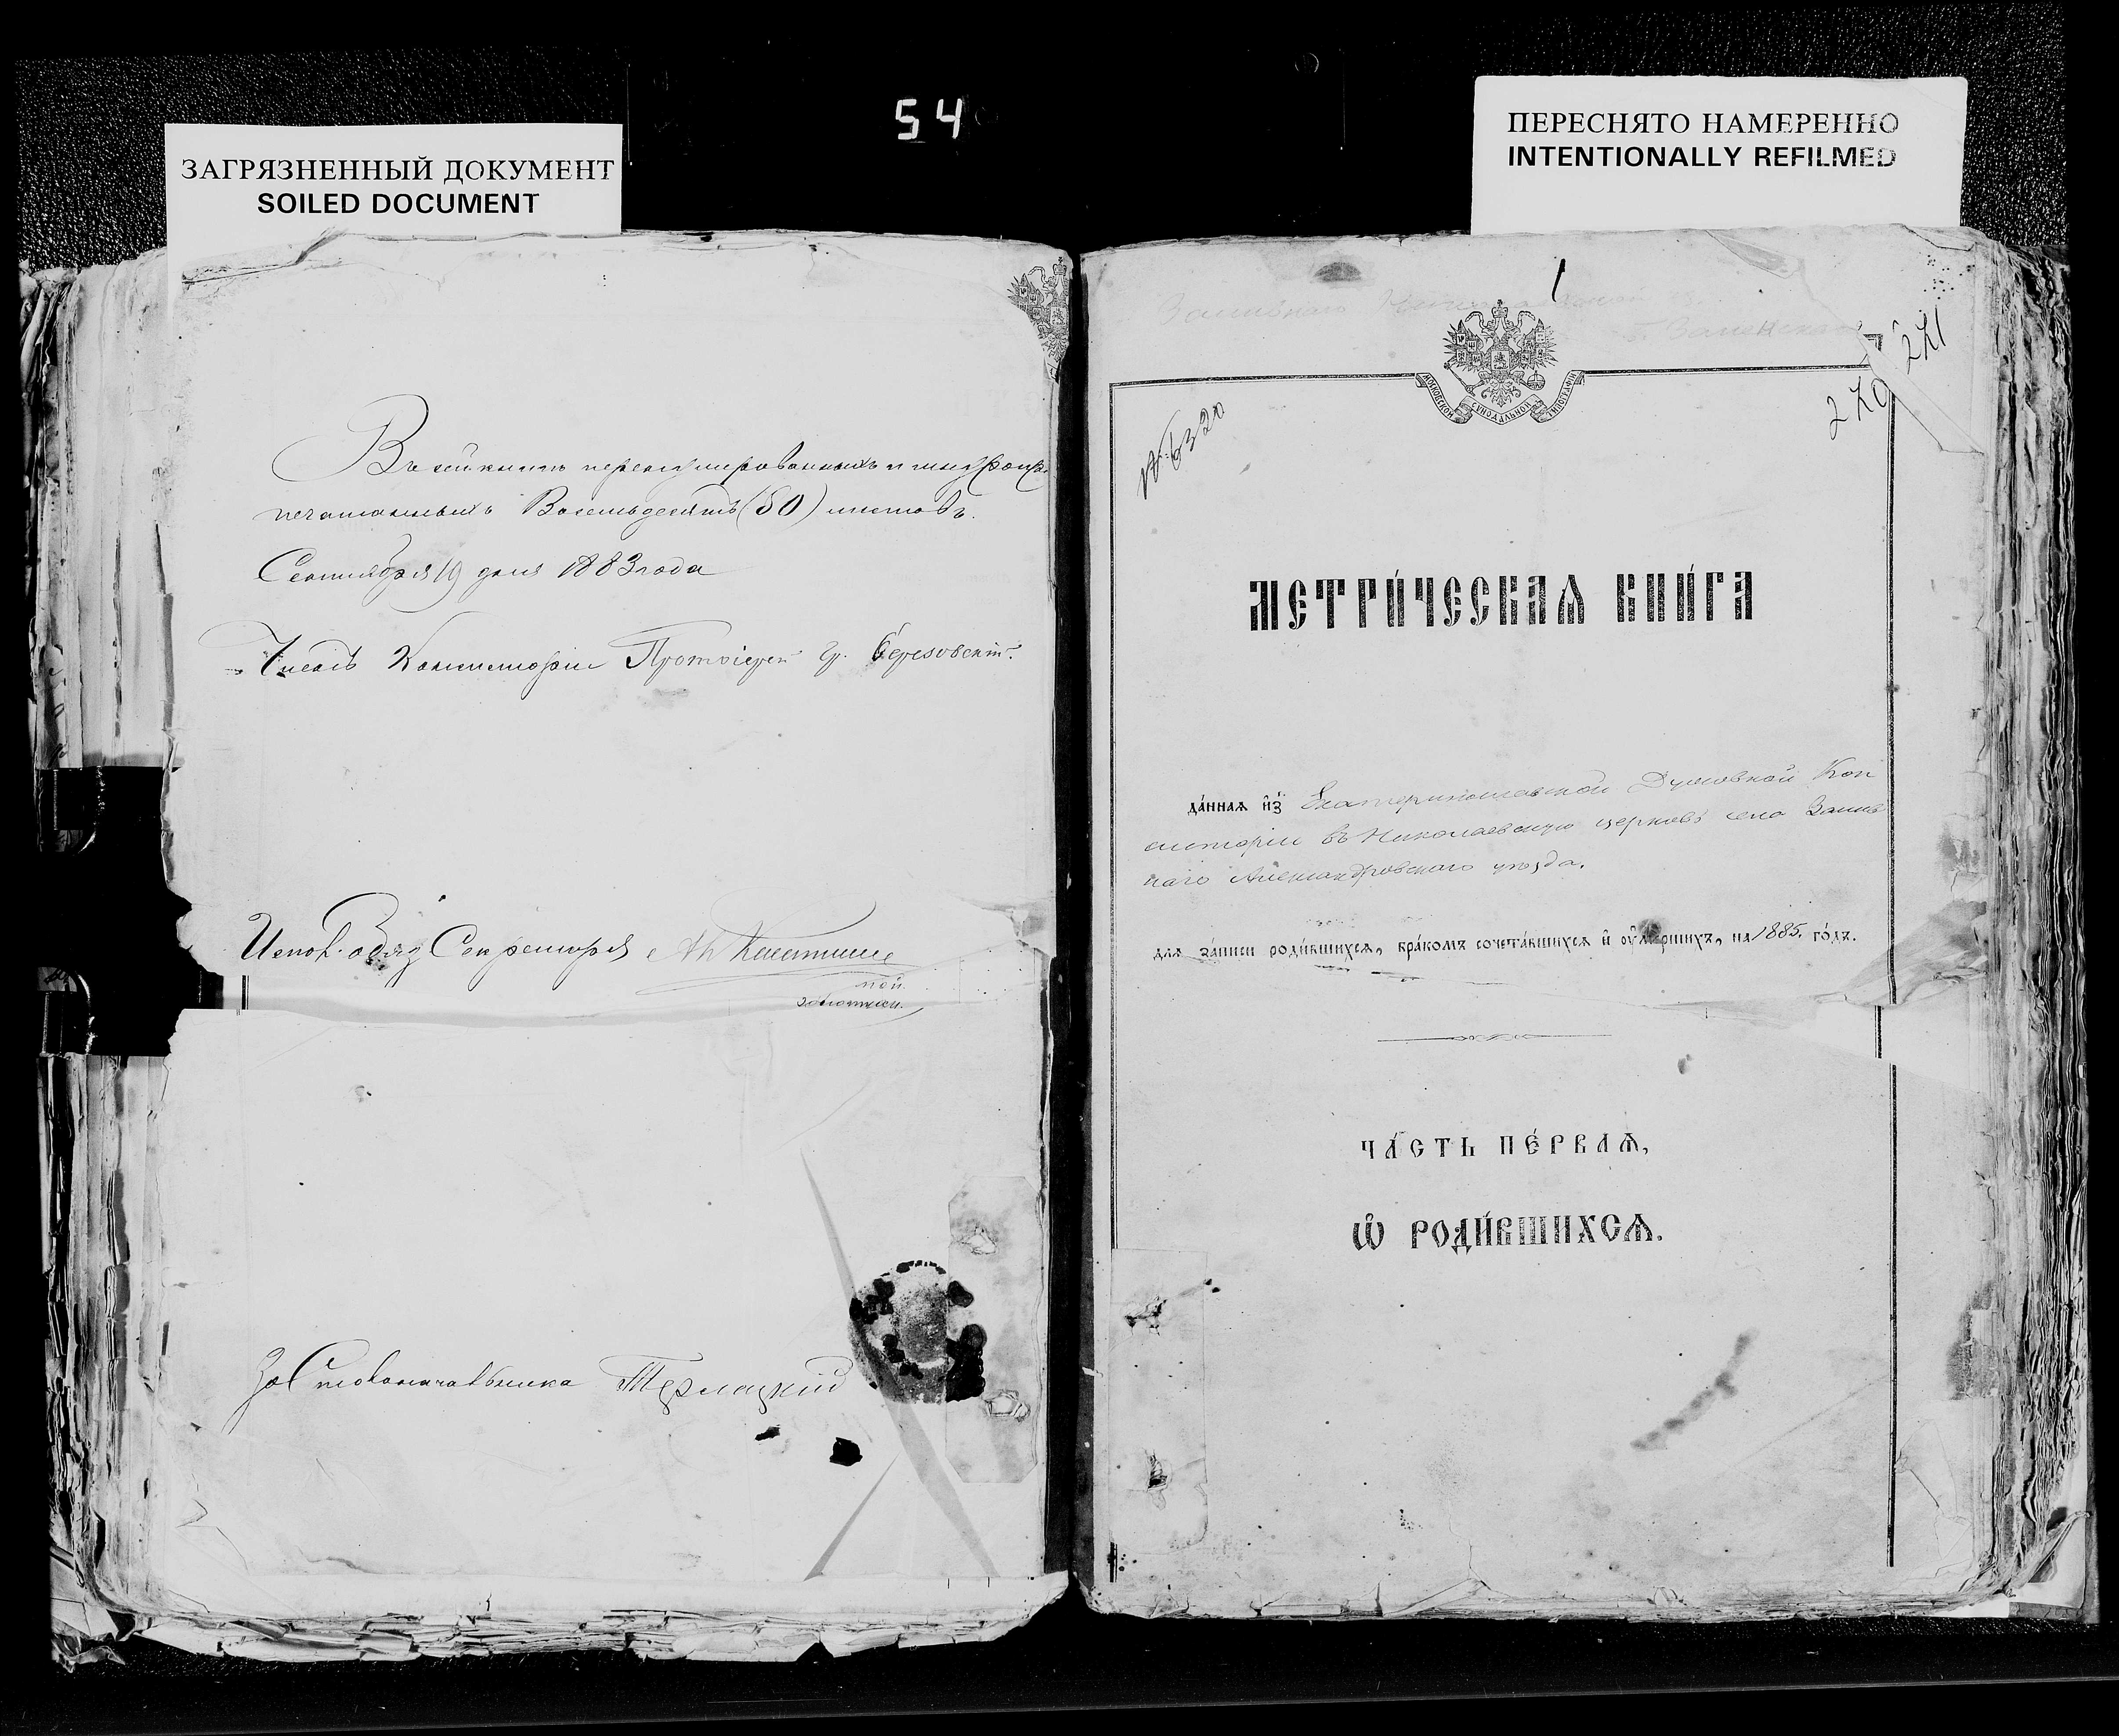 54
ЗАГРЯЗНЕННЫЙ ДОКУМЕНТ
SOILED DOCUMENT
ПЕРЕСНЯТО НАМЕРЕННО
INTENTIONALLY REFILMED
Въ сей книгѣ перенумерованныхъ и
печатанныхъ Восемьдесятъ (80) листовъ.
Сентября 19 дня 1883 года
Членъ Консисторіи Протоіерей Гр. Березовскій.
Исправ. обяз. Секретаря
За Столоначальника Терлецкій
1
271
270
№ 6320
МОСКОВСКОЙ СѴНОДАЛЬНОЙ ТИПОГРАФІИ
МЕТРИ́ЧЕСКАѦ КНИ́ГА
да́ннаѧ и҆з̾ Екатеринославской Духовной Кон
систоріи въ Николаевскую церковь села Залив
наго Александровскаго уѣзда.
длѧ за́писи роди́вшихсѧ, бра́комъ сочета́вшихсѧ и҆ ѹ҆ме́ршихъ, на 1885. го́дъ.
ЧА́СТЬ ПЕ́РВАѦ,
Ѡ҆ РОДИ́ВШИХСѦ.